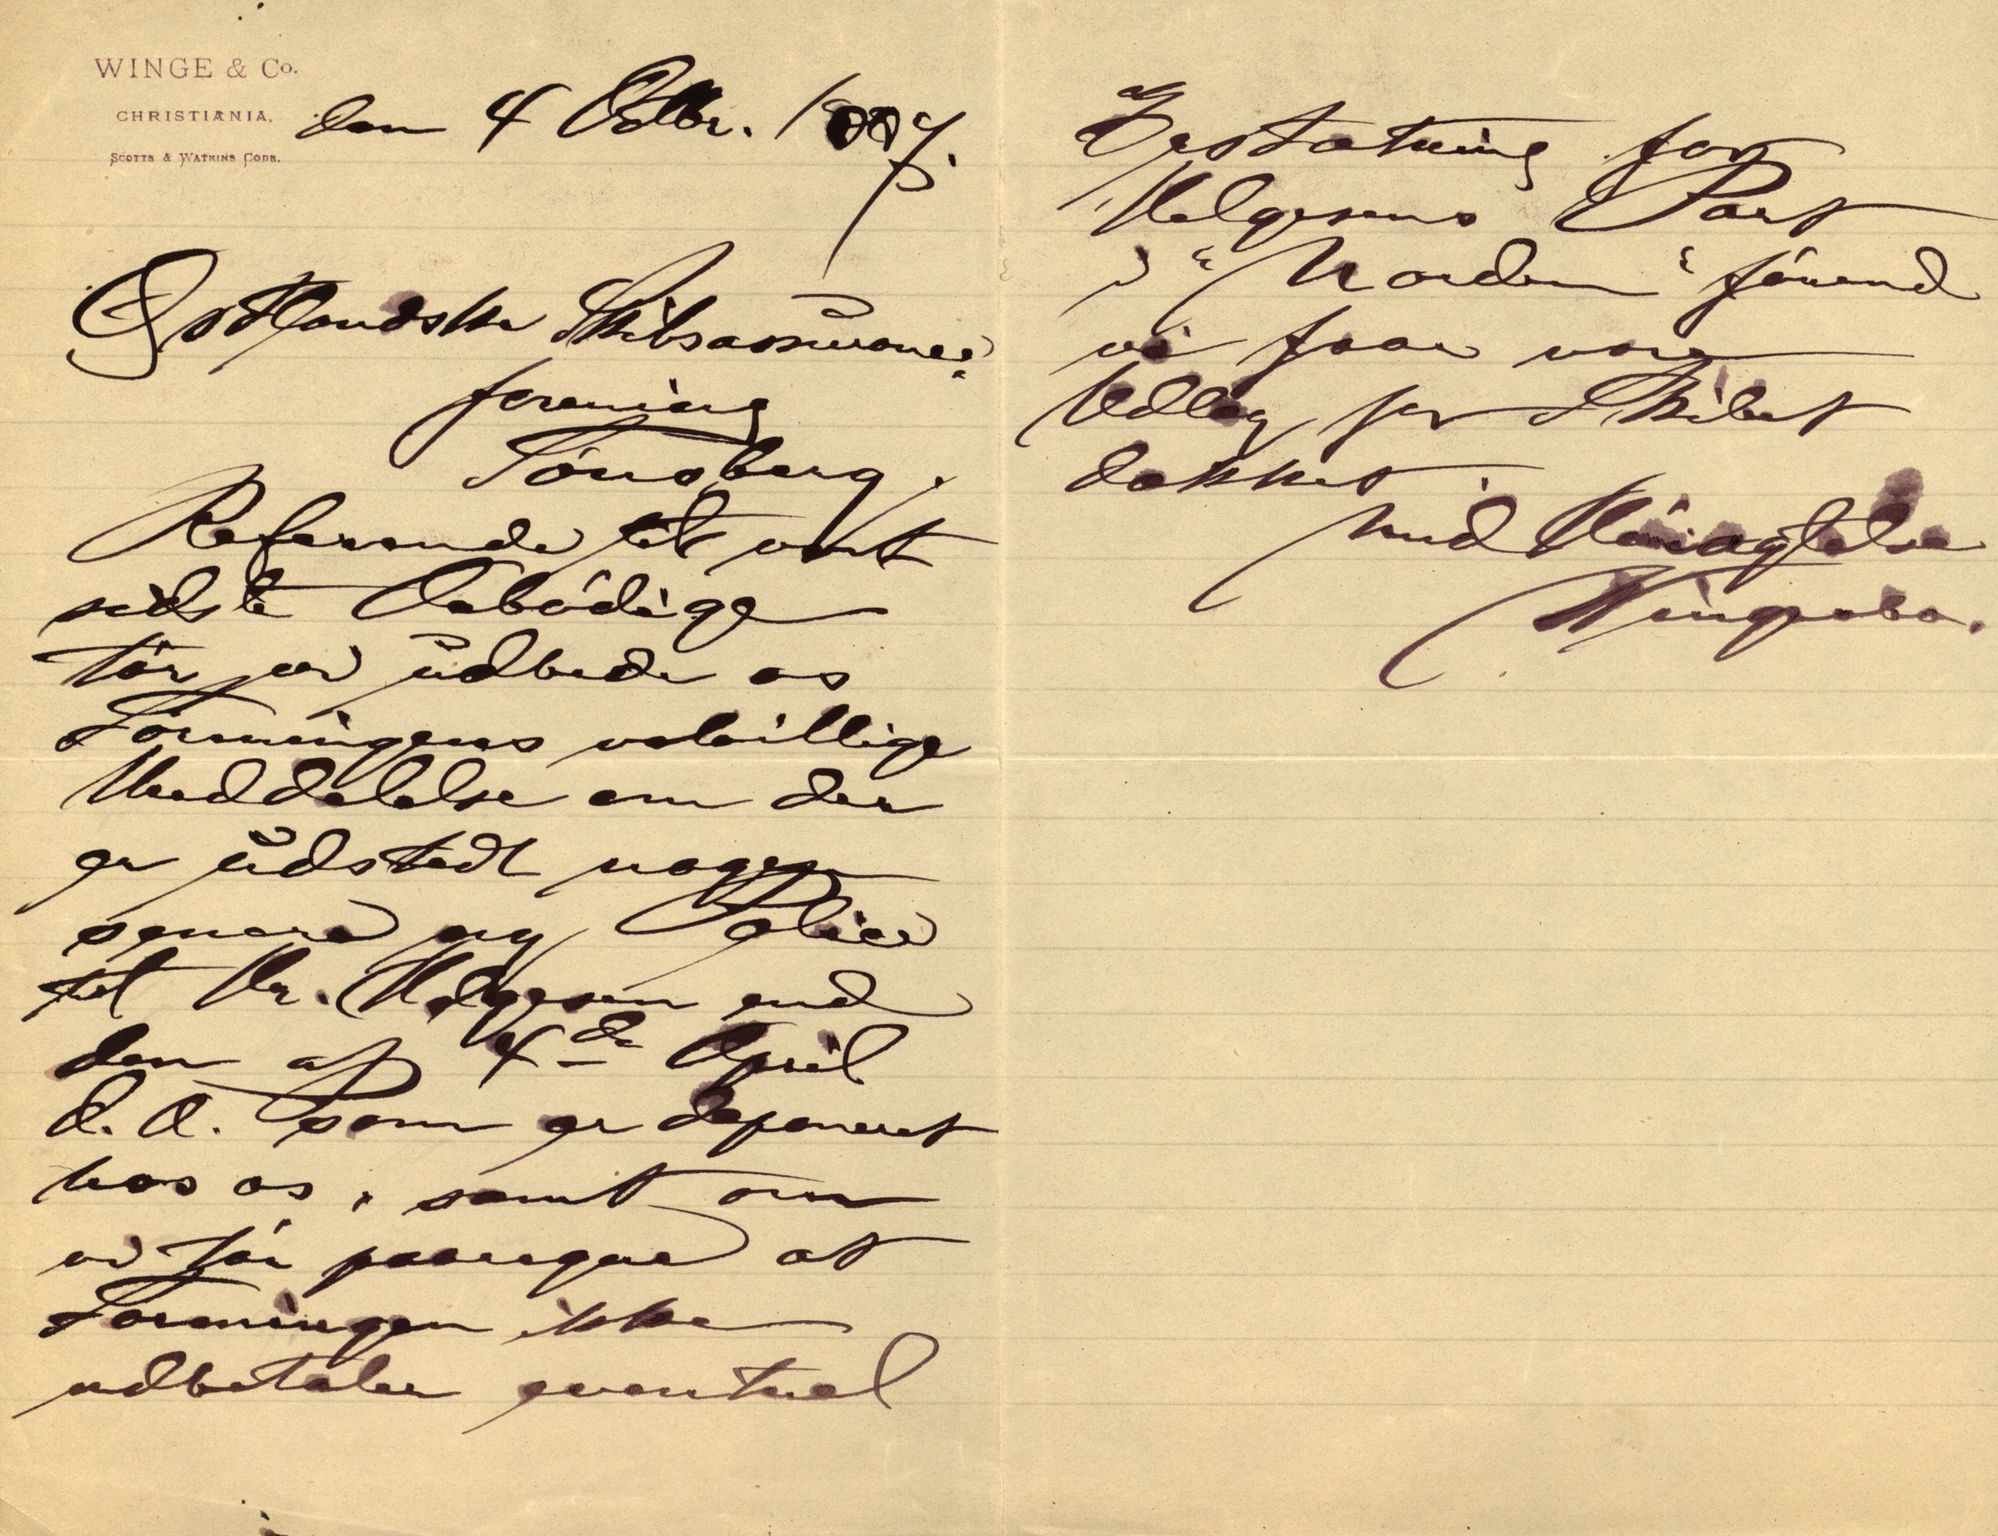 WINGE & Co.
CHRISTIANIA.
SCOTTS & WATKINS CODE.
den 4 Octbr. 1887.
Østlandske Skibsassurance
forening
Tönsberg.
Referende til vort
sidste Ærbödige
tör vi udbede os
Foreningens velvillige
Meddelelse om der
er udstedt nogen
senere ny Police
til Hr. Helgesen end
den af 4de April
d. A. som er deponeret
hos os, samt om
vi tör paaregne at
Foreningen ikke
udbetaler eventuel
Erstatning for
Helgesens Part
i "Norden" förend
vi faar vore
Udlæg for Skibet
dækket.
Med Höiagtelse
Winge & Co.